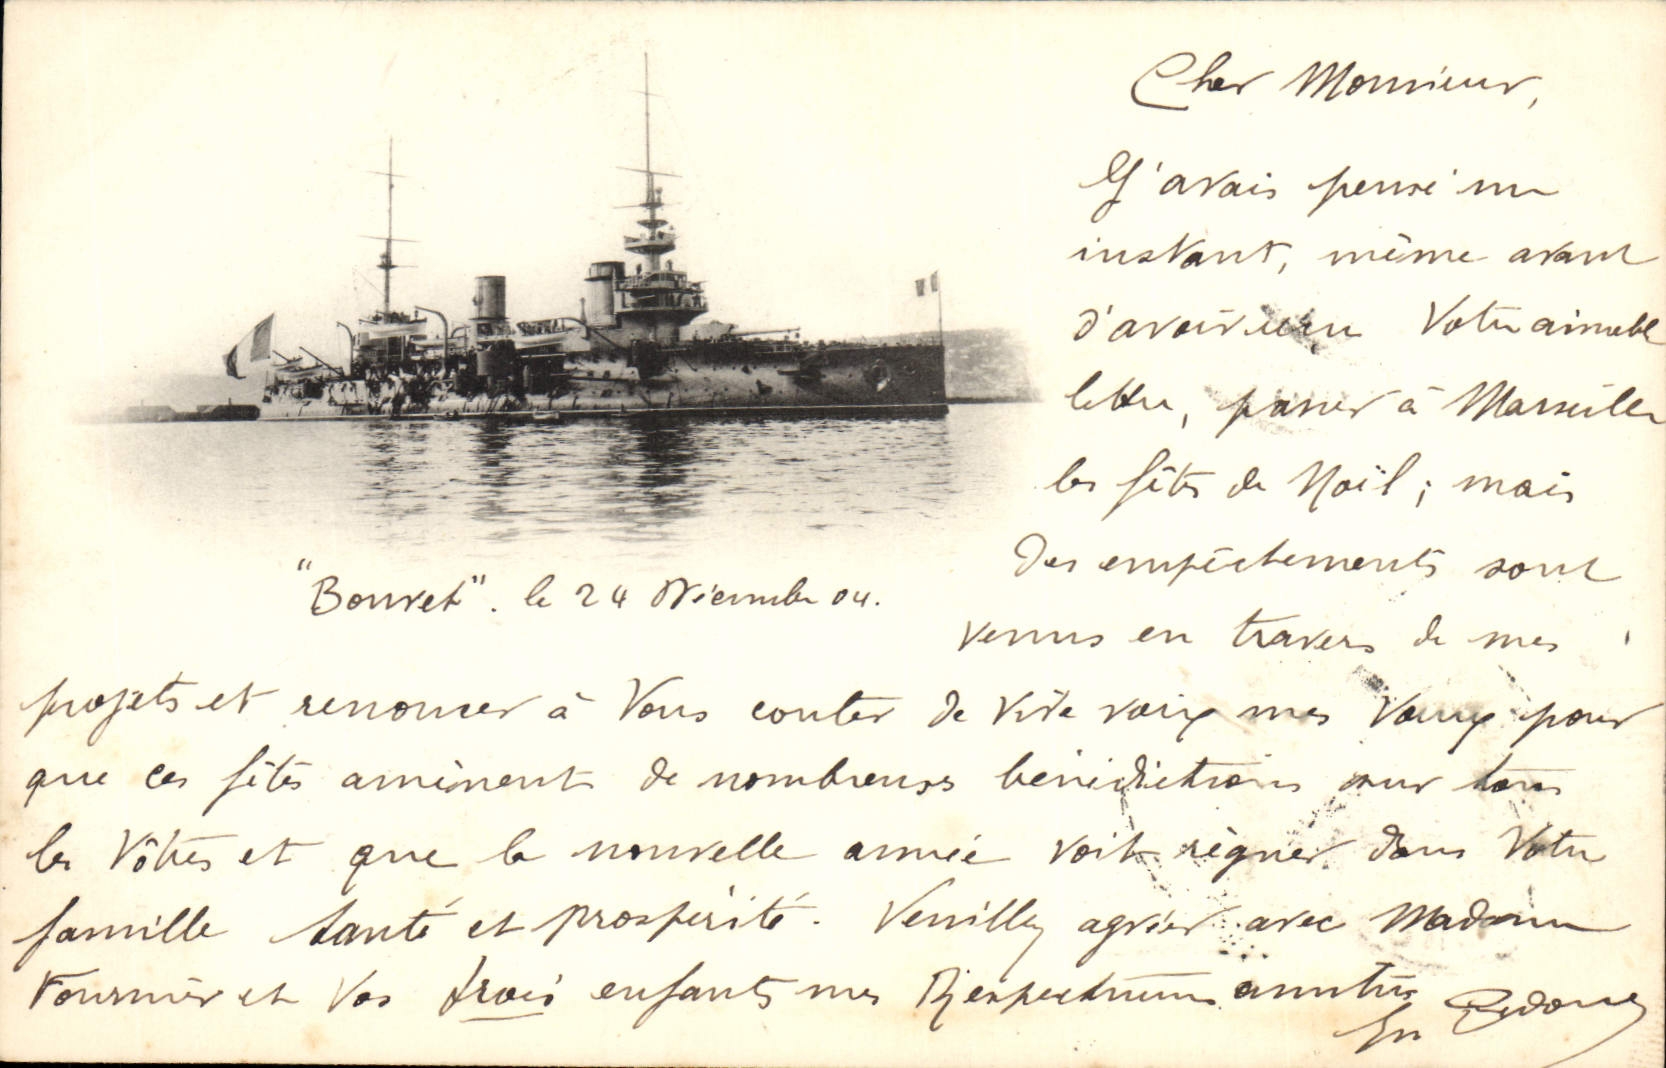 Cher Monsieur,
J'avais pensé un
instant, même avant
d'avoir reçu Votre aimable
lettre, passer à Marseille
les fêtes de Noël ; mais
des empêchements sont
venus en travers de mes
"Bouvet". le 24 Décembre 04.
projets et renoncer à Vous conter de vive voix mes Vœux pour
que ces fêtes amènent de nombreuses bénédictions sur tous
les Vôtres et que la nouvelle année voit régner dans Votre
famille santé et prospérité. Veuillez agréer avec Madame
Fournier et Vos trois enfants mes Respectueuses amitiés